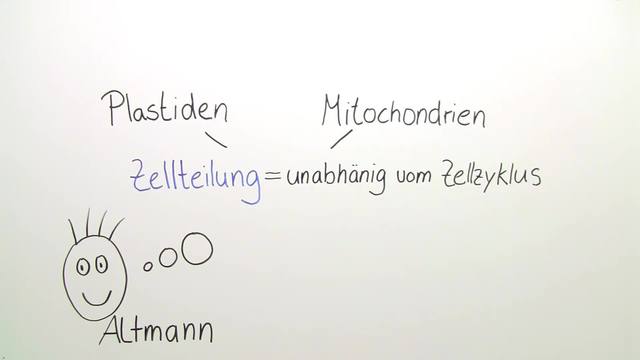 Plastiden Mitochondrien
Zellteilung = unabhänig vom Zellzyklus
Altmann